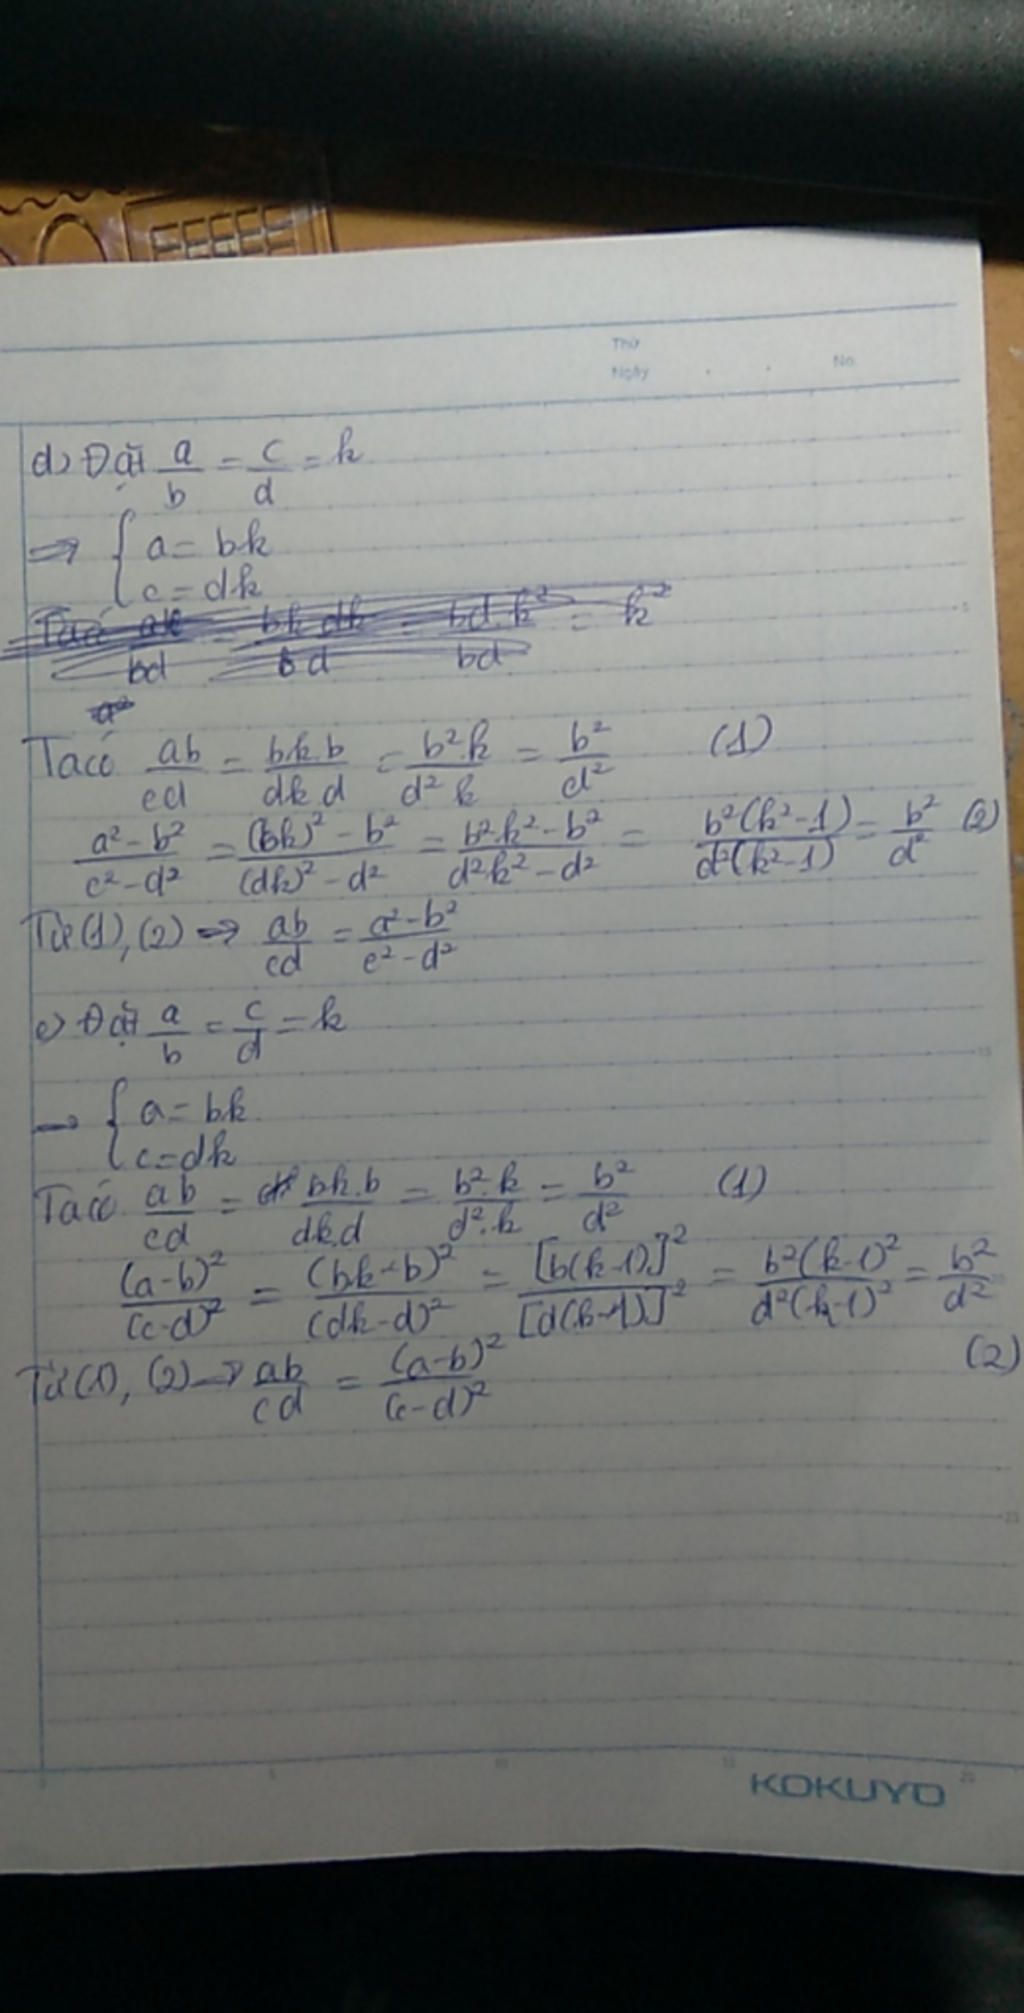 Thứ
Ngày . . No.
d) Đặt a/b = c/d = k
=> { a = bk
c = dk
Ta có ac/bd = bk.dk/bd = bd.k²/bd = k²
a²
Ta có ab/cd = bk.b/dk.d = b².k/d².k = b²/d² (1)
a²-b²/c²-d² = (bk)²-b²/(dk)²-d² = b²k²-b²/d²k²-d² = b²(k²-1)/d²(k²-1) = b²/d² (2)
Từ (1), (2) => ab/cd = a²-b²/c²-d²
e) Đặt a/b = c/d = k
→ { a = bk
c = dk
Ta có ab/cd = bk.b/dk.d = b².k/d².k = b²/d² (1)
(a-b)²/(c-d)² = (bk-b)²/(dk-d)² = [b(k-1)]²/[d(k-1)]² = b²(k-1)²/d²(k-1)² = b²/d²
(2)
Từ (1), (2) → ab/cd = (a-b)²/(c-d)²
KOKUYO